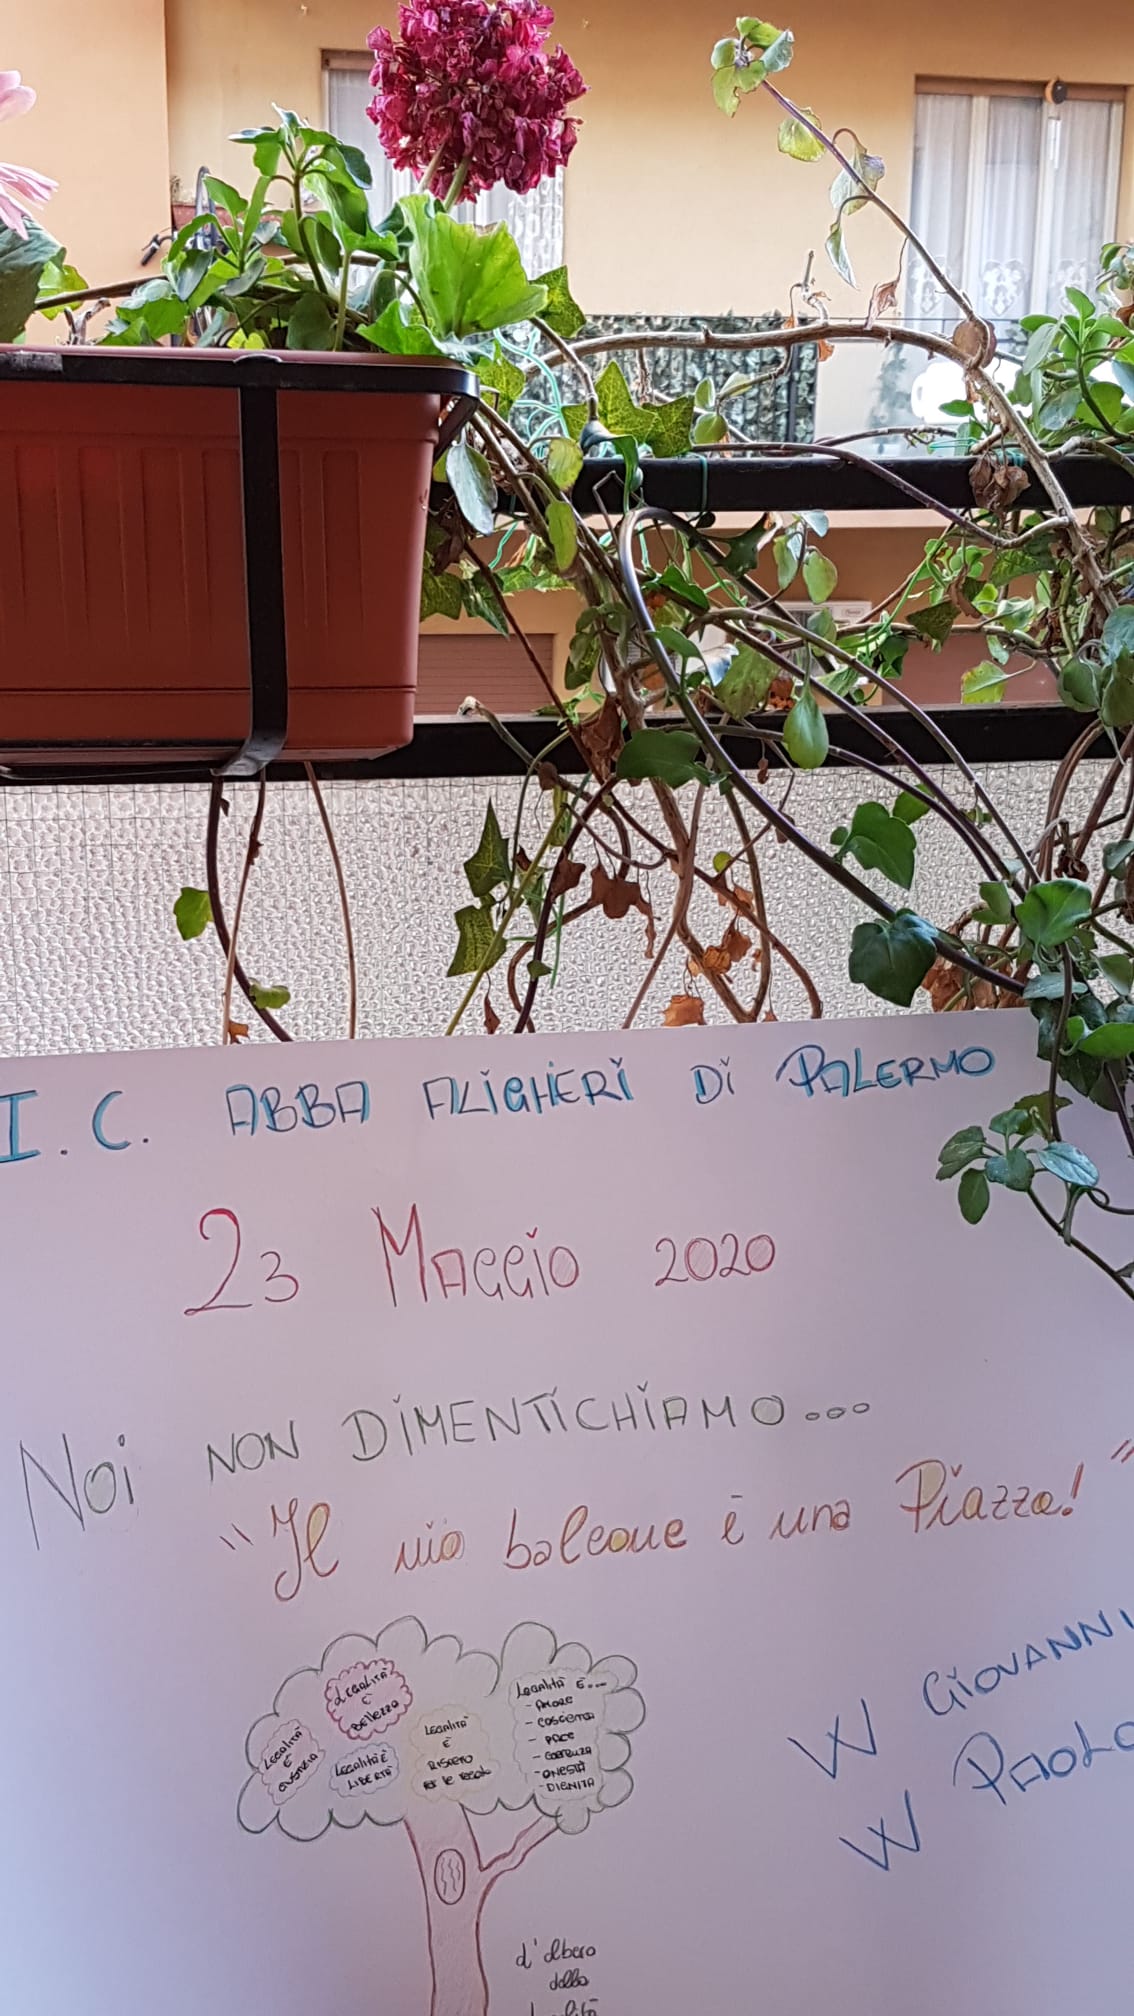 I. C. ABBA ALIGHIERI DI PALERMO
23 MAGGIO 2020
NOI NON DIMENTICHIAMO...
"Il mio balcone è una Piazza!"
W GIOVANNI
W PAOLO
LEGALITÀ
È
BELLEZZA
LEGALITÀ
È
GIUSTIZIA
LEGALITÀ È
LIBERTÀ
LEGALITÀ
È
RISPETTO
PER LE REGOLE
LEGALITÀ È...
- AMORE
- COSCIENZA
- PACE
- COERENZA
- ONESTÀ
- DIGNITÀ
L'albero
della
legalità